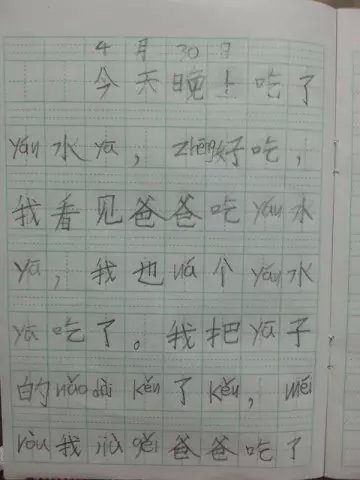 4月30日
今天晚上吃了
yán水yā，zhēng好吃，
我看见爸爸吃yán水
yā，我也ná个yán水
yā吃了。我把yā子
的nǎodài kěn了kěn，méi
ròu我jiù gěi爸爸吃了